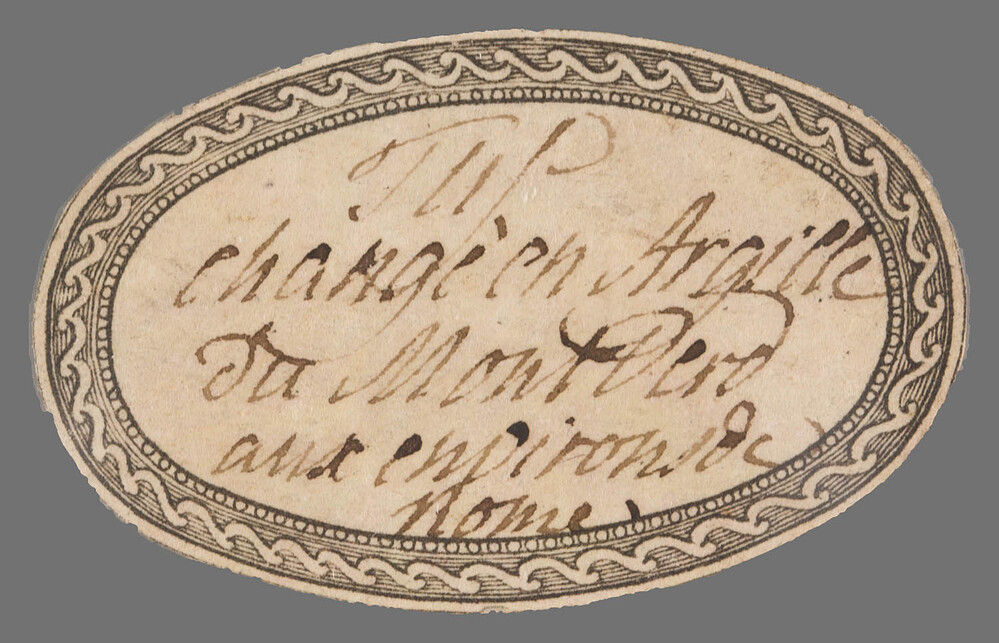 Tuf
changé en Argille
Du Mont Verd
aux environs de
Rome